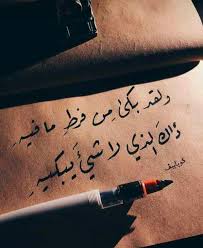 ولقد بكىٰ مِن فرطِ ما فيهِ
ذاكَ الذي لا شيءَ يُبكيهِ